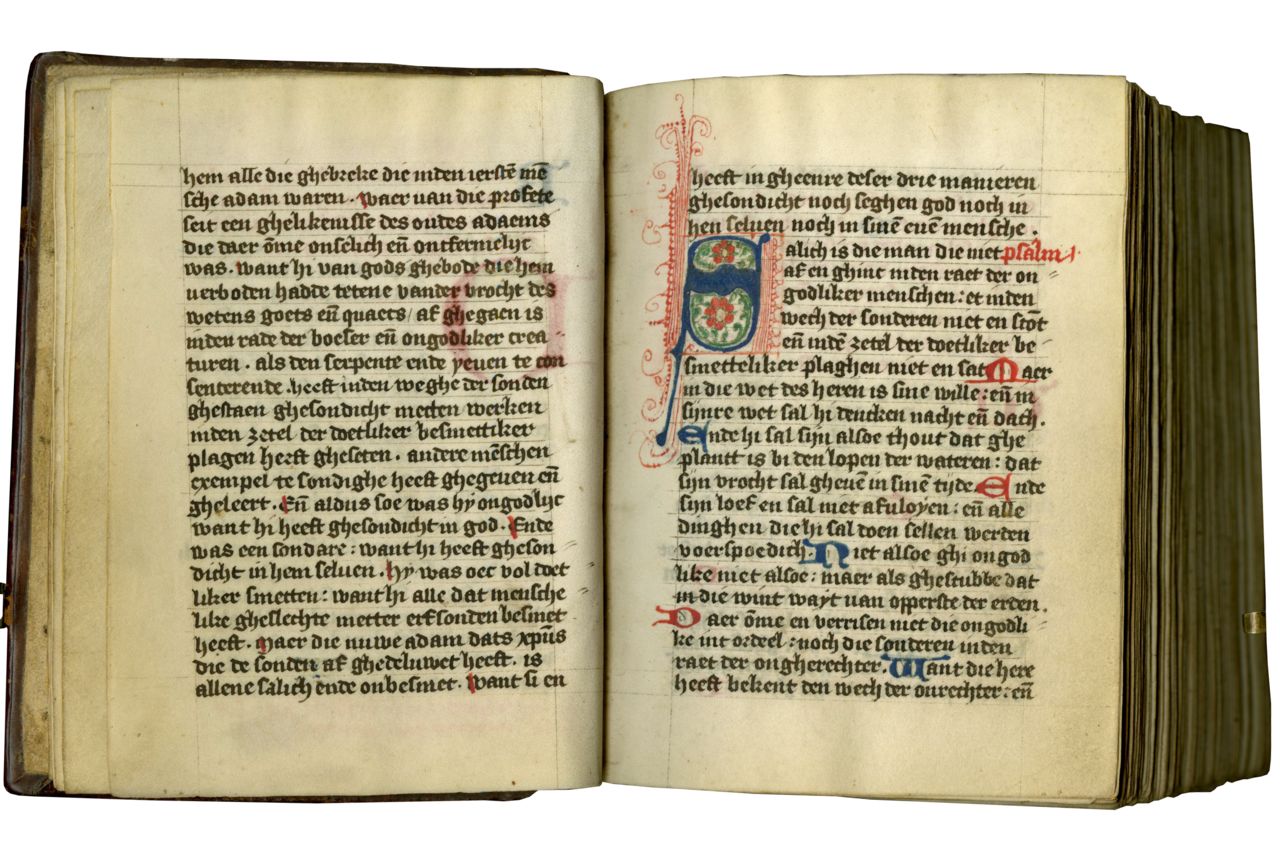 hem alle die ghebreke die inden ierstē mē
sche adam waren. waer van die profete
seit een ghelikenisse des oudes adaems
die daer ōme onselich eñ ontfermelijc
was. want hi van gods ghebode die hem
verboden hadde tetene vander vrocht des
wetens goets eñ quaets/ af ghegaen is
inden rade der boeser eñ ongodliker crea
turen. als den serpente ende yeven te con
senterende. heeft inden weghe der sonden
ghestaen ghesondicht metten werken
inden zetel der doetliker besmettiker
plagen heeft gheseten. andere mēschen
exempel te sondighe heeft ghegeuen eñ
gheleert. Eñ aldus soe was hy ongodlijc
want hi heeft ghesondicht in god. Ende
was een sondare: want hi heeft gheson
dicht in hem seluen. hy was oec vol doet
liker smetten: want hi alle dat mensche
like gheslechte metter erfsonden besmet
heeft. Maer die nuwe adam dats xpūs
die de sonden af ghedeluwet heeft. is
allene salich ende onbesmet. want si en
heeft in gheenre deser drie manieren
ghesondicht noch seghen god noch in
hen seluen noch in sinē euē mensche.
Salich is die man die niet psalm
af en ghinc inden raet der on
godliker menschen: et inden
wech der sonderen niet en stōt
eñ indē zetel der doetliker be
smetteliker plaghen niet en sat Maer
in die wet des heren is sine wille: eñ in
sijnre wet sal hi dencken nacht eñ dach.
Ende hi sal sijn alsoe thout dat ghe
plantt is bi den lopen der wateren: dat
sijn vrocht sal gheuē in sinē tijde. Ende
sijn loef en sal niet afuloyen: eñ alle
dinghen die hi sal doen sellen werden
voerspoedich. Niet alsoe ghi ongod
like niet alsoe: maer als ghestubbe dat
in die wint wayt van opperste der erden.
Daer ōme en verrisen niet die ongodli
ke int ordeel: noch die sonderen inden
raet der ongherechter. Want die here
heeft bekent den wech der ourechter: eñ